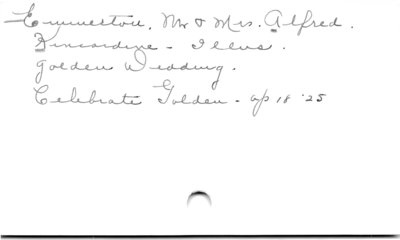 Emmerton, Mr & Mrs. Alfred.
Kincardine - Illus.
Golden Wedding.
Celebrate Golden - Ap 18 '25